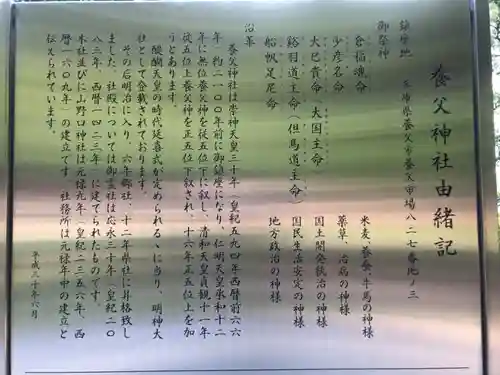 養父神社由緒記
鎮座地
兵庫県養父市養父市場八二七番地ノ三
御祭神
倉稲魂命　米麦、養蚕、牛馬の神様
少彦名命　薬草、治病の神様
大巳貴命　大国主命　国土開発統治の神様
谿羽道主命（但馬道主命）　国民生活安定の神様
船帆足尼命　地方政治の神様
沿革
養父神社は崇神天皇三十年（皇紀五九四年西暦前六六
年、約二一〇〇年前に御鎮座になり、仁明天皇承和十二
年に無位養父神を従五位下に叙し、清和天皇貞観十一年
従五位上養父神を正五位下叙され、十六年正五位上を加
うとあります。
醍醐天皇の時代延喜式が定められるゝに当り、明神大
社として登載されております。
その后明治に入り、六年郷社、十二年県社に昇格致し
ました。社殿については御霊社は応永三十年（皇紀二〇
八三年、西暦一四二三年）に建てられたものです。
本社並びに山野口神社は元禄九年（皇紀二三五六年、西
暦一六〇九年）の建立です。社務所は元禄年中の建立と
伝えられています。
平成三十年六月